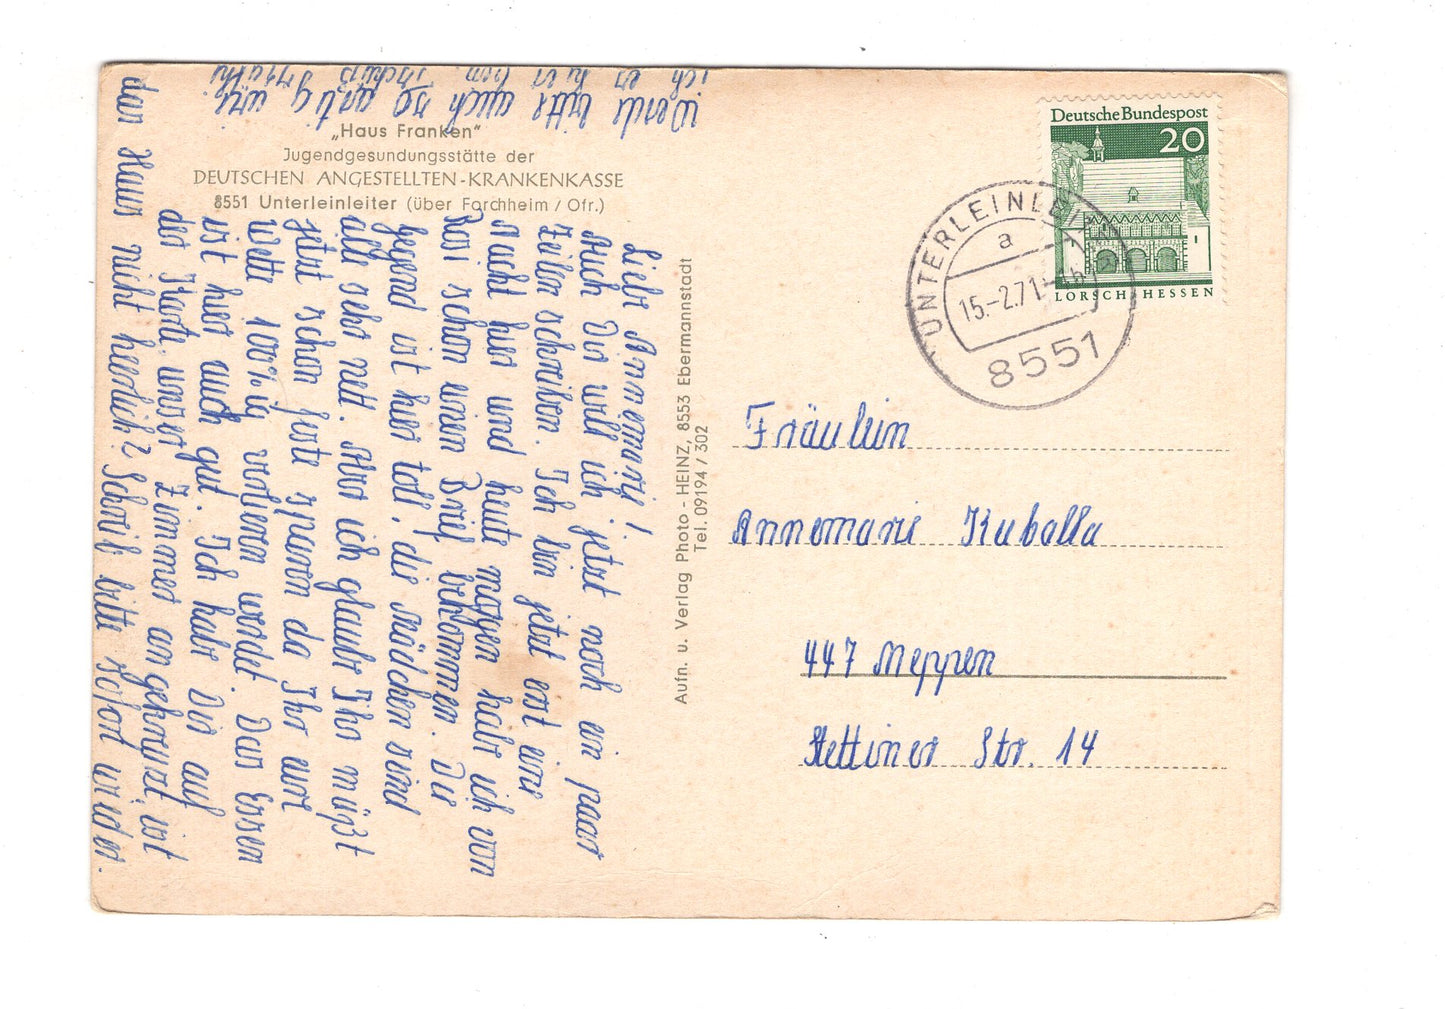 „Haus Franken“
Jugendgesundungsstätte der
DEUTSCHEN ANGESTELLTEN-KRANKENKASSE
8551 Unterleinleiter (über Forchheim / Ofr.)
Liebe Annemarie!
Auch Dir will ich jetzt noch ein paar
Zeilen schreiben. Ich bin jetzt erst eine
Nacht hier und heute morgen habe ich von
Rosi schon einen Brief bekommen. Die
Gegend ist hier toll, die Mädchen sind
alle sehr nett. Aber ich glaube Ihr müßt
jetzt schon feste sparen da Ihr eure
Wette 100%ig verlieren werdet. Das Essen
ist hier auch gut. Ich habe Dir auf
der Karte unser Zimmer angekreuzt, ist
das Haus nicht herrlich? Schreib bitte sofort wieder.
Werde bitte auch so artig wie
ich es hier bin. Tschüß
Aufn. u. Verlag Photo - HEINZ, 8553 Ebermannstadt
Tel. 09194 / 302
Deutsche Bundespost
20
LORSCH HESSEN
UNTERLEINLEI
a
15.-2.71
8551
Fräulein
Annemarie Kuballa
447 Meppen
Stettiner Str. 14